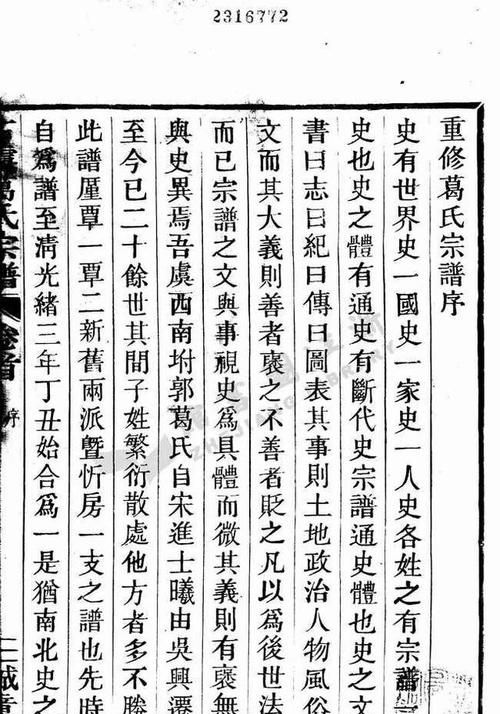 2316772
重修葛氏宗譜序
史有世界史一國史一家史一人史各姓之有宗譜
史也史之體有通史有斷代史宗譜通史體也史之
書曰志曰紀曰傳曰圖表其事則土地政治人物風俗
文而其大義則善者褒之不善者貶之凡以爲後世法
而已宗譜之文與事視史爲具體而微其義則有褒無
與史異焉吾虞西南坿郭葛氏自宋進士曦由吳興遷
至今已二十餘世其間子姓繁衍散處他方者多不勝
此譜厪覃一覃二新舊兩派曁忻房一支之譜也先時
自爲譜至淸光緒三年丁丑始合爲一是猶南北史之
葛氏宗譜 卷首 序
浙江圖書館
ZHEJIANG LIBRARY